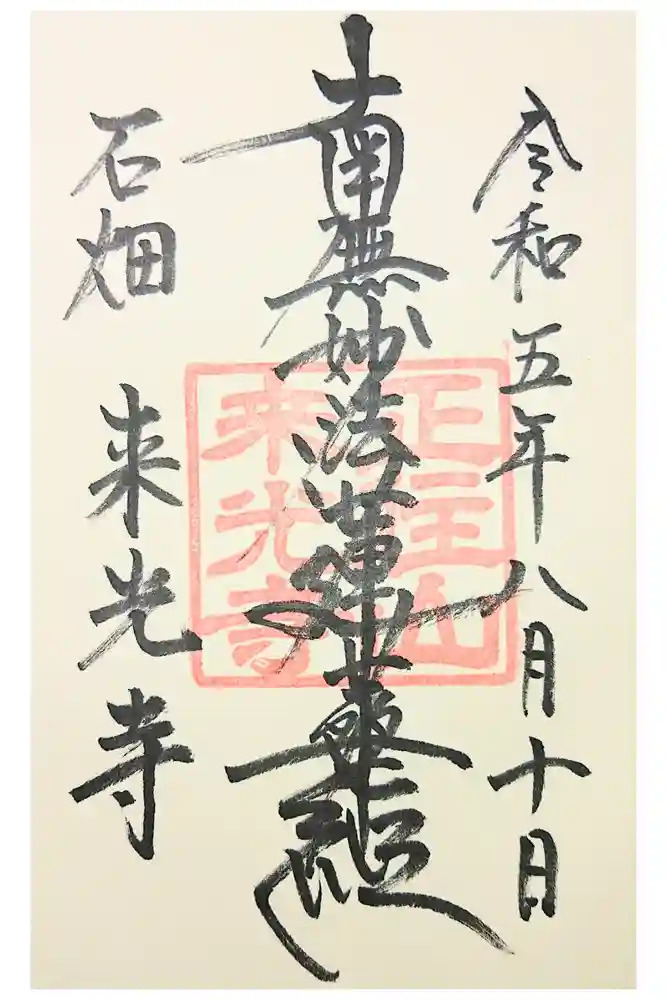 令和五年八月十日
南無妙法蓮華経
石畑 来光寺
正主山
来光寺